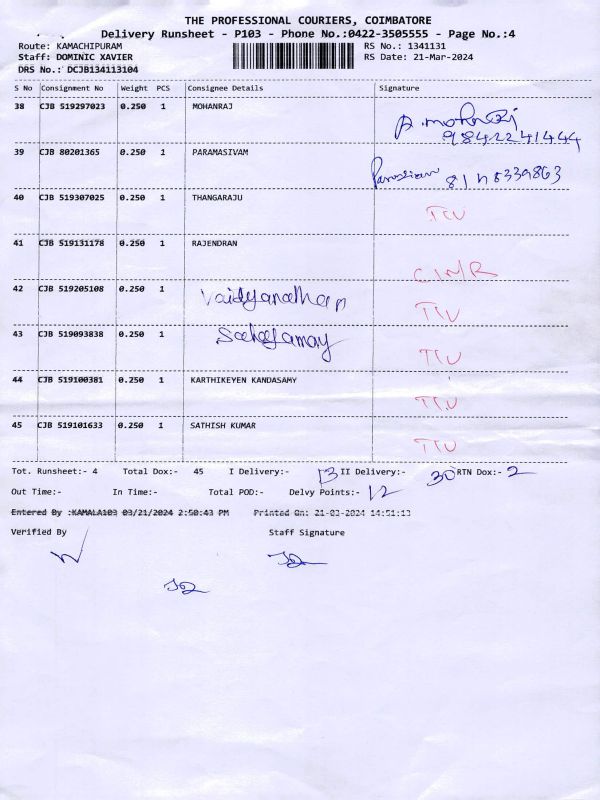 THE PROFESSIONAL COURIERS, COIMBATORE
Delivery Runsheet - P103 - Phone No.:0422-3505555 - Page No.:4
Route: KAMACHIPURAM RS No.: 1341131
Staff: DOMINIC XAVIER RS Date: 21-Mar-2024
DRS No.: DCJB134113104
S No Consignment No Weight PCS Consignee Details Signature
38 CJB 519297023 0.250 1 MOHANRAJ
9842241444
39 CJB 80201365 0.250 1 PARAMASIVAM
40 CJB 519307025 0.250 1 THANGARAJU
41 CJB 519131178 0.250 1 RAJENDRAN
42 CJB 519205108 0.250 1 Vaidyanathan
43 CJB 519093838 0.250 1
44 CJB 519100381 0.250 1 KARTHIKEYEN KANDASAMY
45 CJB 519101633 0.250 1 SATHISH KUMAR
Tot. Runsheet:- 4 Total Dox:- 45 I Delivery:- 13 II Delivery:- 30 RTN Dox:- 2
Out Time:- In Time:- Total POD:- Delvy Points:- 12
Entered By :KAMALA103 03/21/2024 2:50:43 PM Printed On: 21-03-2024 14:51:13
Verified By Staff Signature